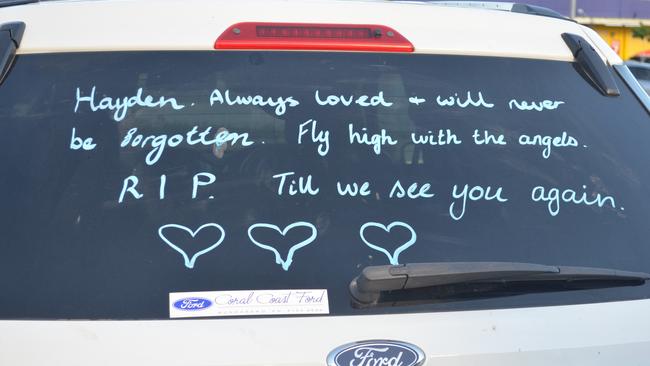 Hayden. Always loved + will never
be forgotten. Fly high with the angels.
R I P. Till we see you again.
Ford Coral Coast Ford
Ford